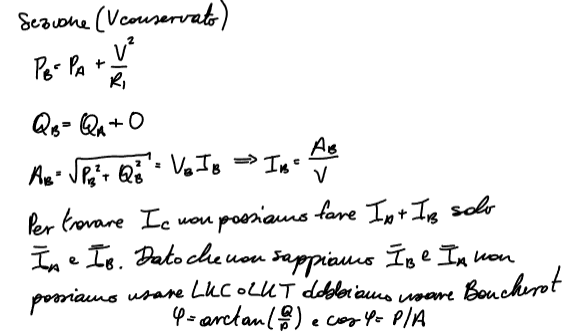 Sezione (V conservato)
P_B = P_A + V²/R₁
Q_B = Q_A + 0
A_B = √(P_B² + Q_B²) = V_B I_B ⇒ I_B = A_B/V
Per trovare I_C non possiamo fare I_A + I_B solo
Ī_A e Ī_B. Dato che non sappiamo Ī_B e Ī_A non
possiamo usare LKC o LKT dobbiamo usare Boucherot
φ = arctan(Q/P) e cos φ = P/A